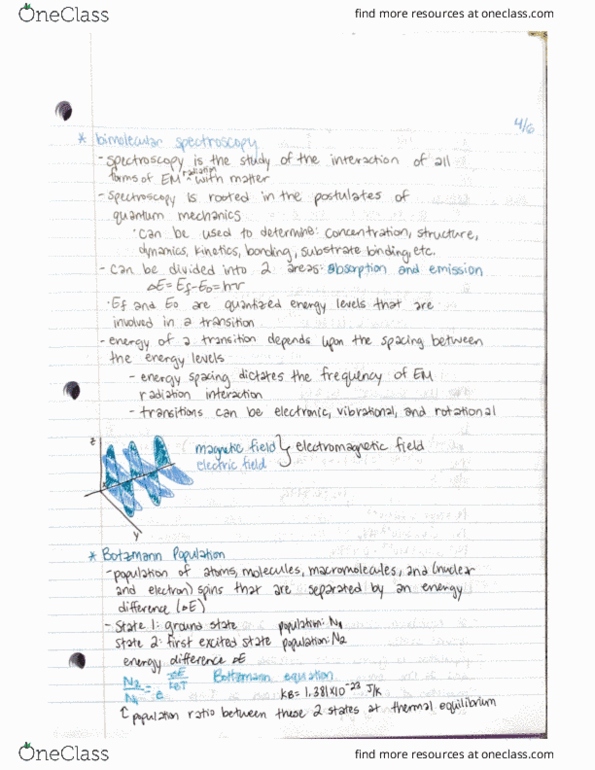 OneClass
find more resources at oneclass.com
4/6
* bimolecular spectroscopy
- spectroscopy is the study of the interaction of all
forms of EM radiation with matter
- spectroscopy is rooted in the postulates of
quantum mechanics
· can be used to determine: concentration, structure,
dynamics, kinetics, bonding, substrate binding, etc.
- can be divided into 2 areas: absorption and emission
ΔE = Ef - E0 = hν
· Ef and E0 are quantized energy levels that are
involved in a transition
- energy of a transition depends upon the spacing between
the energy levels
- energy spacing dictates the frequency of EM
radiation interaction
- transitions can be electronic, vibrational, and rotational
z
magnetic field } electromagnetic field
electric field
y
* Botzmann Population
- population of atoms, molecules, macromolecules, and (nuclear
and electron) spins that are separated by an energy
difference (ΔE)
- State 1: ground state population: N1
State 2: first excited state population: N2
energy difference ΔE
N2/N1 = e^ -ΔE/kBT Boltzmann equation
kB = 1.381x10^-23 J/K
↑ population ratio between these 2 states at thermal equilibrium
OneClass
find more resources at oneclass.com